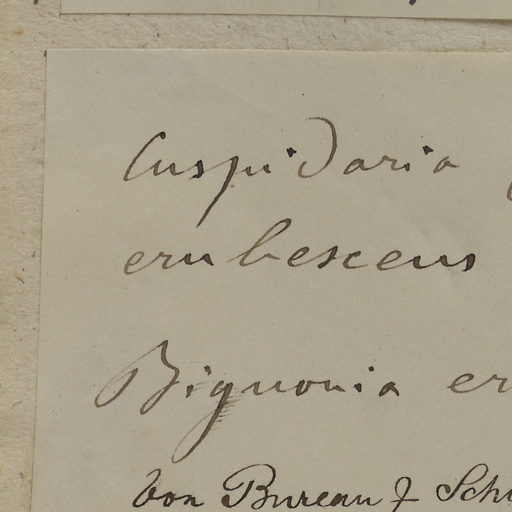 Cuspidaria
erubescens
Bignonia er
Von Bureau & Sch